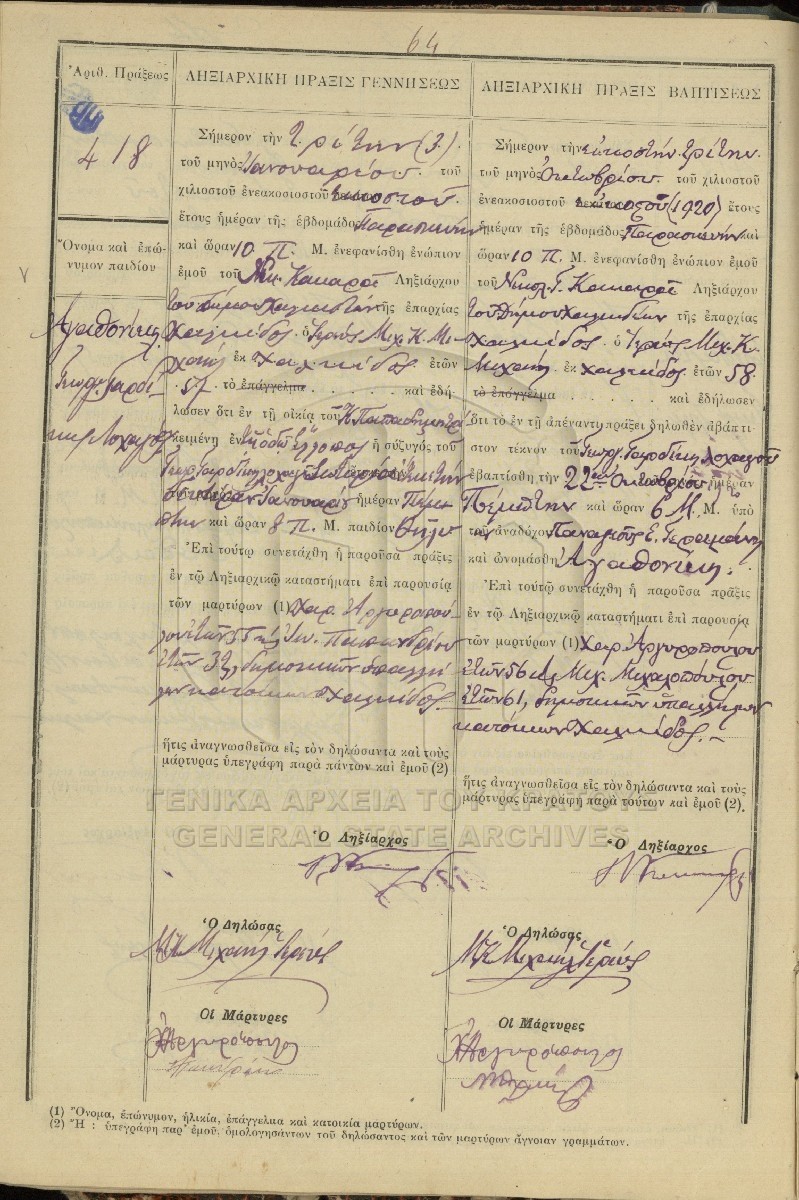 64
Ἀριθ. Πράξεως
418
Ὄνομα καὶ ἐπώ-
νυμον παιδίου
Ἀγαθονίκη
Γεωργ.
Λοχαγοῦ
ΛΗΞΙΑΡΧΙΚΗ ΠΡΑΞΙΣ ΓΕΝΝΗΣΕΩΣ
Σήμερον τὴν τρίτην (3).
τοῦ μηνὸς Ἰανουαρίου. τοῦ
χιλιοστοῦ ἐνεακοσιοστοῦ εἰκοστοῦ.
ἔτους ἡμέραν τῆς ἑβδομάδος Παρασκευὴν
καὶ ὥραν 10 Π. Μ. ἐνεφανίσθη ἐνώπιον
ἐμοῦ τοῦ Νικ. Κακαρᾶ Ληξιάρχου
τοῦ δήμου Χαλκιδέων τῆς ἐπαρχίας
Χαλκίδος. ὁ Ἱερεὺς Μιχ. Κ. Μι-
χαὴλ ἐκ Χαλκίδος ἐτῶν
57. τὸ ἐπάγγελμα . . . . . καὶ ἐδή-
λωσεν ὅτι ἐν τῇ οἰκίᾳ τοῦ Κ. Παπαδημητρί
κειμένῃ ἐν ὁδῷ ἡ σύζυγός του
Γεωργ. λοχαγοῦ τὴν
Ἰανουαρίου ἡμέραν Πέμ-
πτην καὶ ὥραν 8 Π. Μ. παιδίον θῆλυ
Ἐπὶ τούτῳ συνετάχθη ἡ παροῦσα πρᾶξις
ἐν τῷ Ληξιαρχικῷ καταστήματι ἐπὶ παρουσίᾳ
τῶν μαρτύρων (1) Χαρ. Ἀργυροπού-
λου ἐτῶν 55
ἐτῶν 32, δημοτικῶν ὑπαλλή
λων κατοίκων Χαλκίδος.
ἥτις ἀναγνωσθεῖσα εἰς τὸν δηλώσαντα καὶ τοὺς
μάρτυρας ὑπεγράφη παρὰ πάντων καὶ ἐμοῦ (2)
Ὁ Ληξίαρχος
Ὁ Δηλώσας
ΜΚ Μιχαὴλ Ἱερεύς
Οἱ Μάρτυρες
ΧΑργυρόπουλος
ΛΗΞΙΑΡΧΙΚΗ ΠΡΑΞΙΣ ΒΑΠΤΙΣΕΩΣ
Σήμερον τὴν εἰκοστὴν τρίτην.
τοῦ μηνὸς Ὀκτωβρίου. τοῦ χιλιοστοῦ
ἐνεακοσιοστοῦ εἰκοστοῦ (1920) ἔτους
ἡμέραν τῆς ἑβδομάδος Παρασκευὴν καὶ
ὥραν 10 Π. Μ. ἐνεφανίσθη ἐνώπιον ἐμοῦ
τοῦ Νικολ. Γ. Κακαρᾶ Ληξιάρχου
τοῦ Δήμου Χαλκιδέων τῆς ἐπαρχίας
Χαλκίδος. ὁ Ἱερεὺς Μιχ. Κ.
Μιχαὴλ ἐκ Χαλκίδος ἐτῶν 58.
τὸ ἐπάγγελμα . . . . . καὶ ἐδήλωσεν
ὅτι τὸ ἐν τῇ ἀπέναντι πράξει δηλωθὲν ἀβάπτι-
στον τέκνον τοῦ Γεωργ. Λοχαγοῦ
ἐβαπτίσθη τὴν 22αν Ὀκτωβρίου, ἡμέραν
Πέμπτην καὶ ὥραν 6 Μ. Μ. ὑπὸ
τοῦ ἀναδόχου Παναγιώτ. Ε. Γεραμάνη
καὶ ὠνομάσθη Ἀγαθονίκη.
Ἐπὶ τούτῳ συνετάχθη ἡ παροῦσα πρᾶξις
ἐν τῷ Ληξιαρχικῷ καταστήματι ἐπὶ παρουσίᾳ
τῶν μαρτύρων (1) Χαρ. Ἀργυροπούλου
ἐτῶν 56 Μιχ. Μιχαλοπούλου
ἐτῶν 61, δημοτικῶν ὑπαλλήλων
κατοίκων Χαλκίδος.
ἥτις ἀναγνωσθεῖσα εἰς τὸν δηλώσαντα καὶ τοὺς
μάρτυρας ὑπεγράφη παρὰ τούτων καὶ ἐμοῦ (2).
Ὁ Ληξίαρχος
Ὁ Δηλώσας
ΜΚ Μιχαὴλ Ἱερεύς
Οἱ Μάρτυρες
ΧΑργυρόπουλος
ΓΕΝΙΚΑ ΑΡΧΕΙΑ ΤΟΥ ΚΡΑΤΟΥΣ
GENERAL STATE ARCHIVES
(1) Ὄνομα, ἐπώνυμον, ἡλικία, ἐπάγγελμα καὶ κατοικία μαρτύρων.
(2) Ἢ : ὑπεγράφη παρ' ἐμοῦ, ὁμολογησάντων τοῦ δηλώσαντος καὶ τῶν μαρτύρων ἄγνοιαν γραμμάτων.